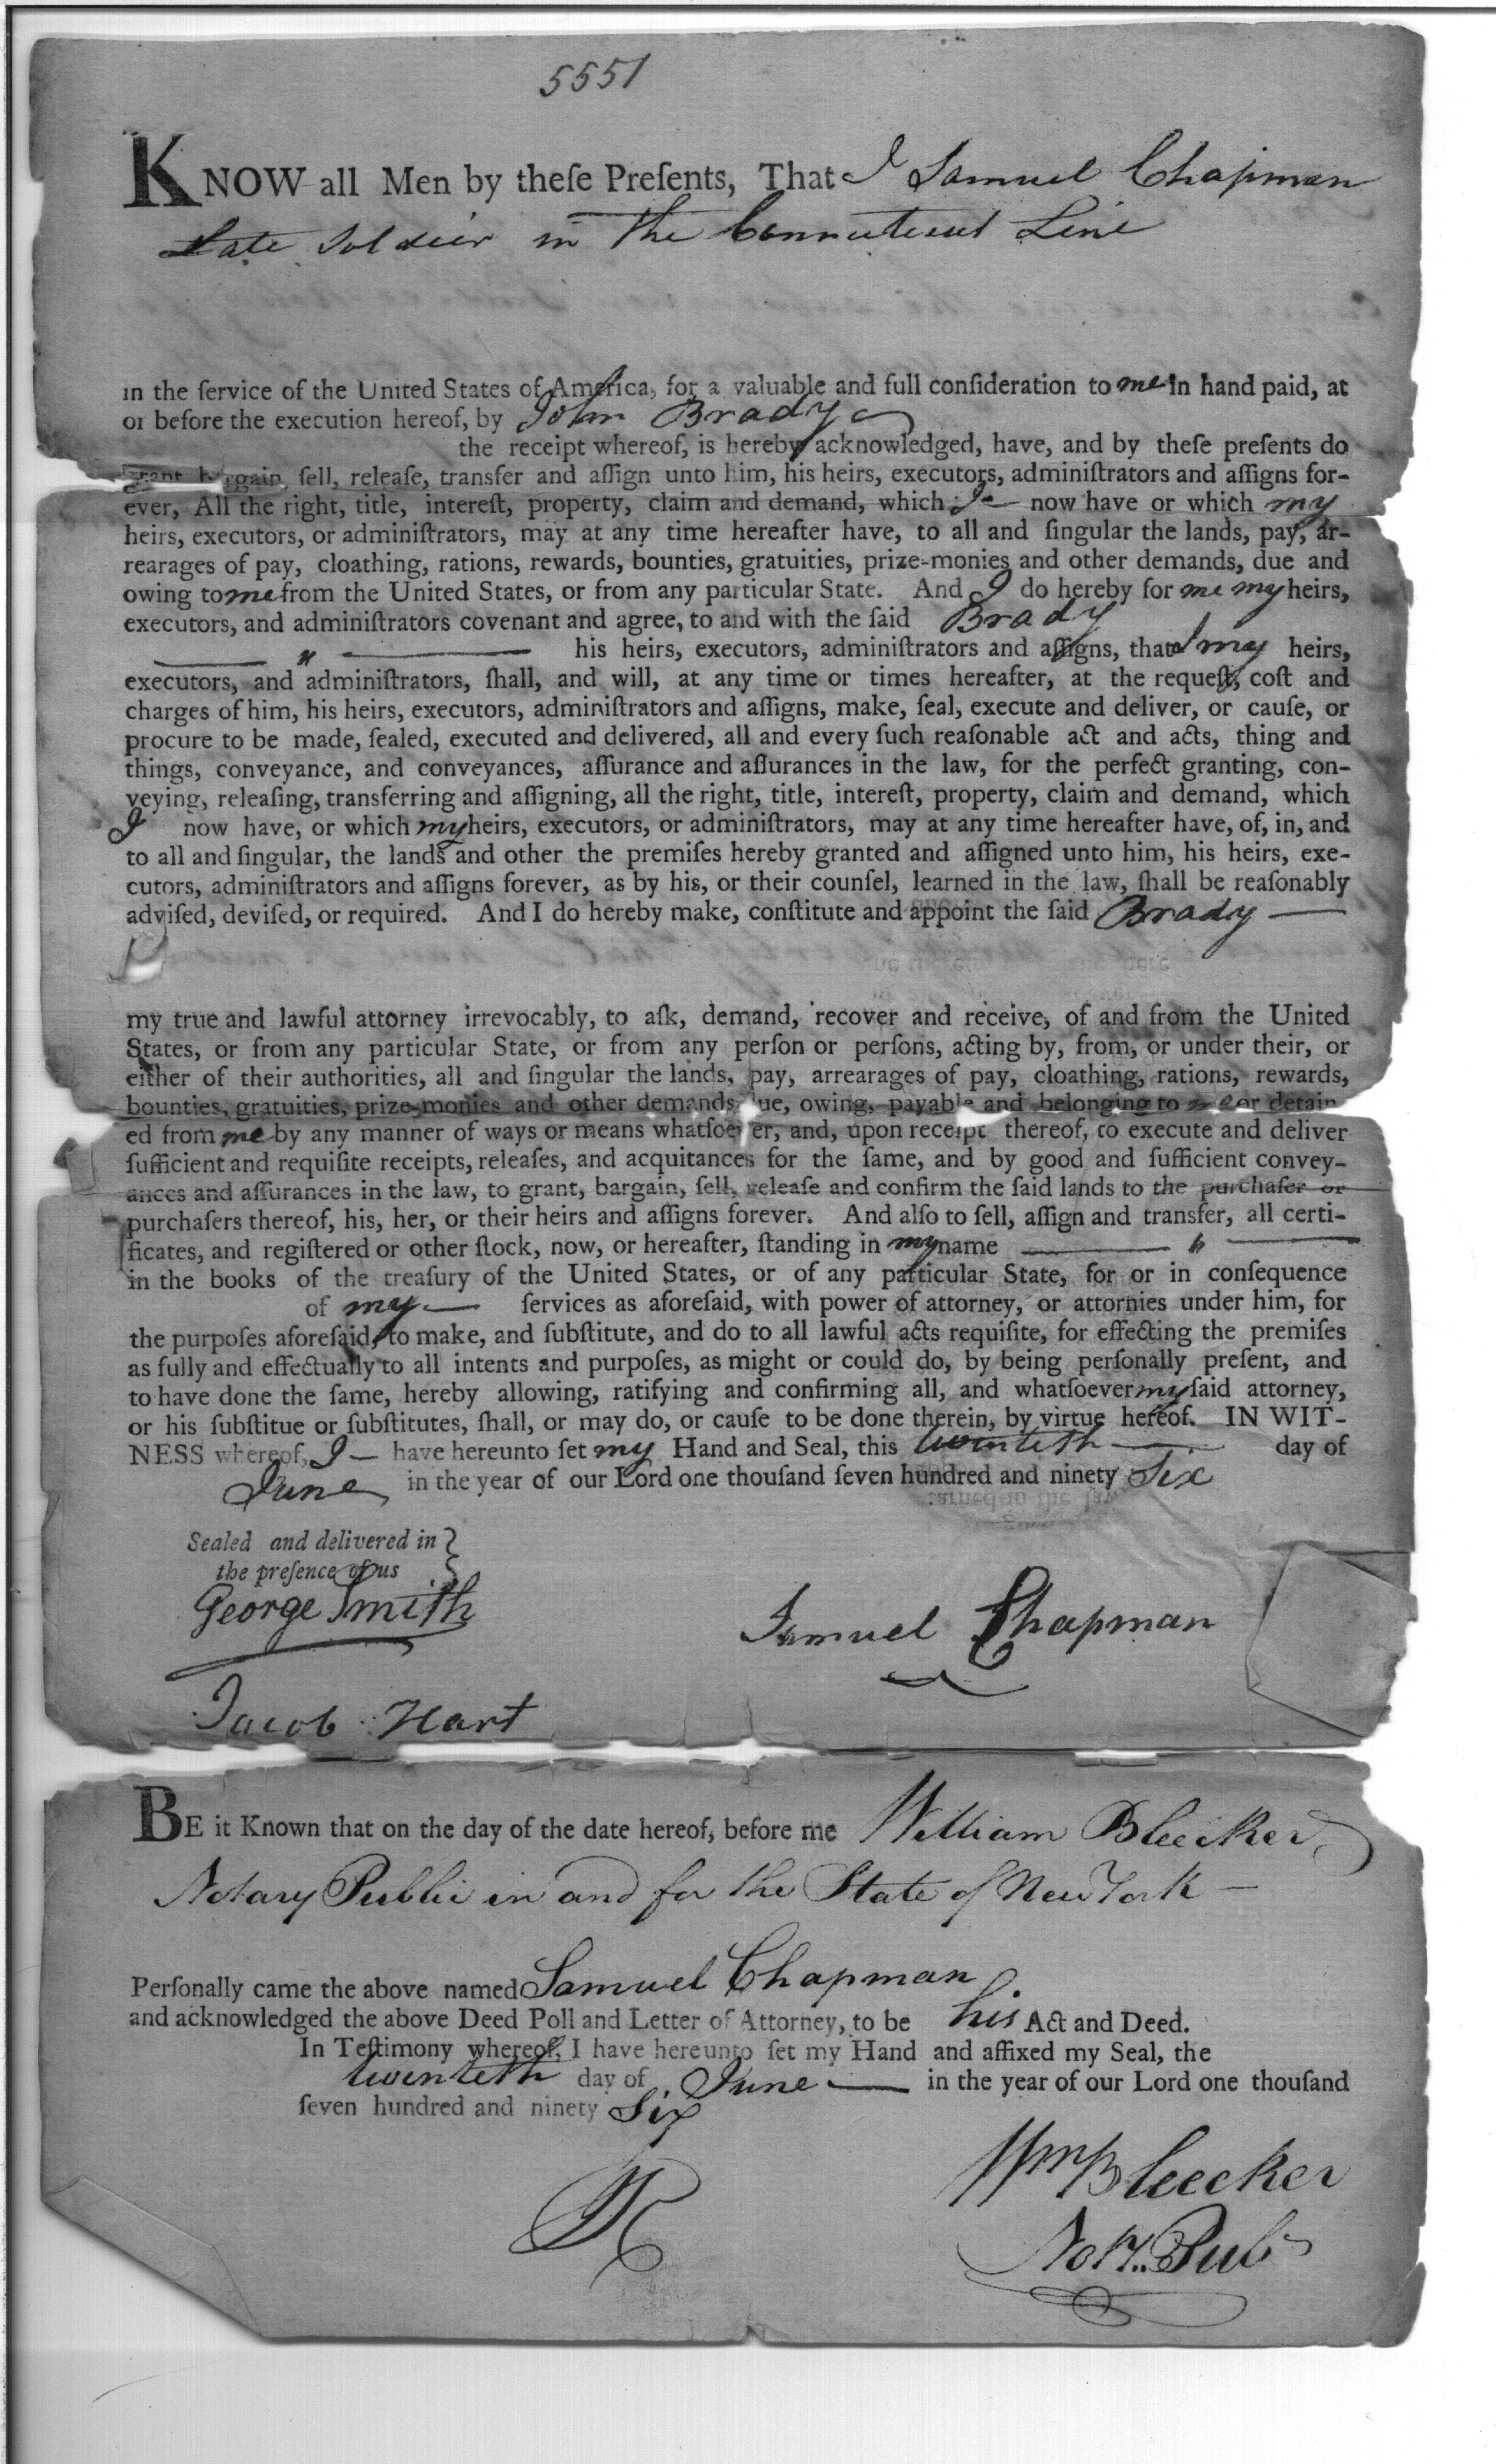 5551
KNOW all Men by theſe Preſents, That I Samuel Chapman
Late Soldier in the Connuteicut Line
in the ſervice of the United States of America, for a valuable and full conſideration to me in hand paid, at
or before the execution hereof, by John Brady
the receipt whereof, is hereby acknowledged, have, and by theſe preſents do
grant bargain, ſell, releaſe, transfer and aſſign unto him, his heirs, executors, adminiſtrators and aſſigns for-
ever, All the right, title, intereſt, property, claim and demand, which I now have or which my
heirs, executors, or adminiſtrators, may at any time hereafter have, to all and ſingular the lands, pay, ar-
rearages of pay, cloathing, rations, rewards, bounties, gratuities, prize-monies and other demands, due and
owing to me from the United States, or from any particular State. And I do hereby for me my heirs,
executors, and adminiſtrators covenant and agree, to and with the ſaid Brady
— " — his heirs, executors, adminiſtrators and aſſigns, that I my heirs,
executors, and adminiſtrators, ſhall, and will, at any time or times hereafter, at the requeſt, coſt and
charges of him, his heirs, executors, adminiſtrators and aſſigns, make, ſeal, execute and deliver, or cauſe, or
procure to be made, ſealed, executed and delivered, all and every ſuch reaſonable act and acts, thing and
things, conveyance, and conveyances, aſſurance and aſſurances in the law, for the perfect granting, con-
veying, releaſing, transferring and aſſigning, all the right, title, intereſt, property, claim and demand, which
I now have, or which my heirs, executors, or adminiſtrators, may at any time hereafter have, of, in, and
to all and ſingular, the lands and other the premiſes hereby granted and aſſigned unto him, his heirs, exe-
cutors, adminiſtrators and aſſigns forever, as by his, or their counſel, learned in the law, ſhall be reaſonably
adviſed, deviſed, or required. And I do hereby make, conſtitute and appoint the ſaid Brady —
my true and lawful attorney irrevocably, to aſk, demand, recover and receive, of and from the United
States, or from any particular State, or from any perſon or perſons, acting by, from, or under their, or
either of their authorities, all and ſingular the lands, pay, arrearages of pay, cloathing, rations, rewards,
bounties, gratuities, prize-monies and other demands due, owing, payable and belonging to me or detain
ed from me by any manner of ways or means whatſoever, and, upon receipt thereof, to execute and deliver
ſufficient and requiſite receipts, releaſes, and acquitances for the ſame, and by good and ſufficient convey-
ances and aſſurances in the law, to grant, bargain, ſell, releaſe and confirm the ſaid lands to the purchaſer or
purchaſers thereof, his, her, or their heirs and aſſigns forever. And alſo to ſell, aſſign and transfer, all certi-
ficates, and regiſtered or other ſtock, now, or hereafter, ſtanding in my name — " —
in the books of the treaſury of the United States, or of any particular State, for or in conſequence
of my — ſervices as aforeſaid, with power of attorney, or attornies under him, for
the purpoſes aforeſaid, to make, and ſubſtitute, and do to all lawful acts requiſite, for effecting the premiſes
as fully and effectually to all intents and purpoſes, as might or could do, by being perſonally preſent, and
to have done the ſame, hereby allowing, ratifying and confirming all, and whatſoever my ſaid attorney,
or his ſubſtitue or ſubſtitutes, ſhall, or may do, or cauſe to be done therein, by virtue hereof. IN WIT-
NESS whereof, I — have hereunto ſet my Hand and Seal, this twenteth — day of
June in the year of our Lord one thouſand ſeven hundred and ninety Six
Sealed and delivered in }
the preſence of us }
George Smith
Samuel Chapman
Jacob Hart
BE it Known that on the day of the date hereof, before me William Bleecker
Notary Public in and for the State of New York —
Perſonally came the above named Samuel Chapman
and acknowledged the above Deed Poll and Letter of Attorney, to be his Act and Deed.
In Teſtimony whereof, I have hereunto ſet my Hand and affixed my Seal, the
twenteth day of June — in the year of our Lord one thouſand
ſeven hundred and ninety Six
Wm Bleecker
Noty. Pub